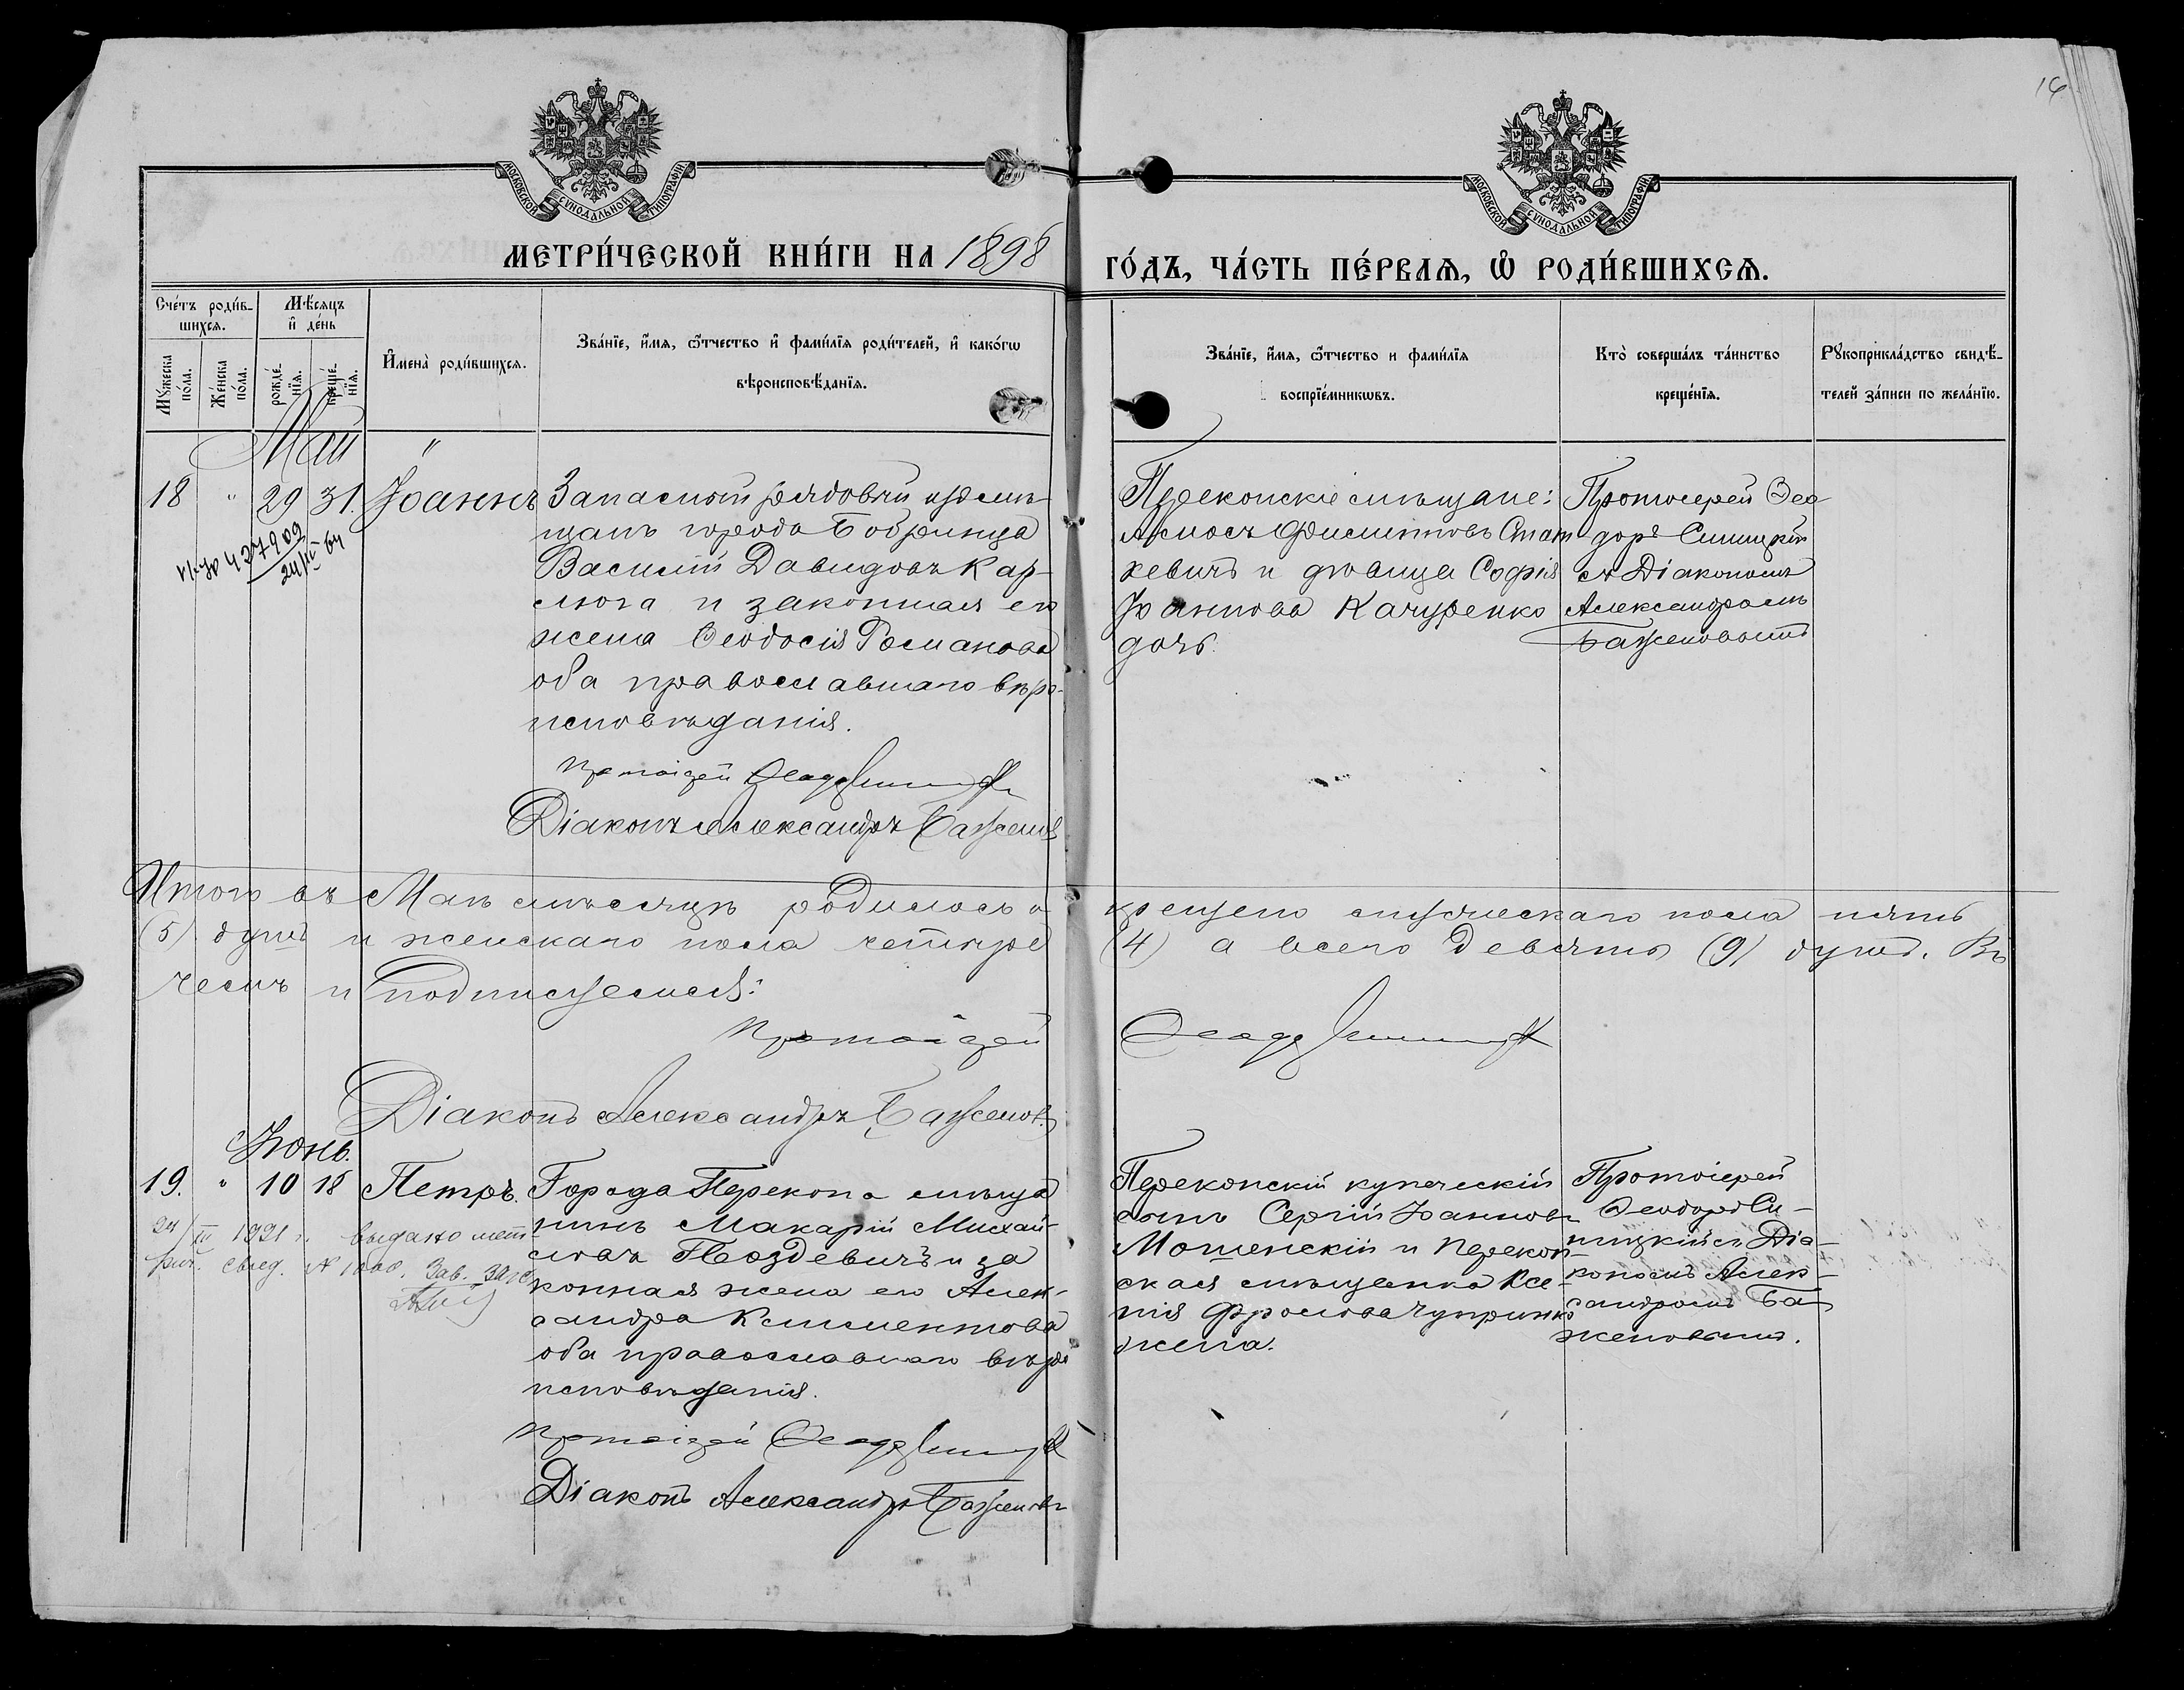 16
МОСКОВСКОЙ СУНОДАЛЬНОЙ ТИПОГРАФІИ
МОСКОВСКОЙ СУНОДАЛЬНОЙ ТИПОГРАФІИ
МЕТРИ́ЧЕСКОЙ КНИ́ГИ НА 1898
ГО́ДЪ, ЧА́СТЬ ПЕ́РВАЯ, Ѡ҆ РОДИ́ВШИХСЯ.
Сче́тъ роди́в-
шихся.
Мꙋжеска
по́ла.
Же́нска
по́ла.
Мѣ́сяцъ
и҆ де́нь
рожде́-
нїя.
креще́-
нїя.
И҆мена̀ роди́вшихся.
Зва́нїе, и҆́мя, ѻ҆́тчество и҆ фами́лїя роди́телей, и҆ како́гѡ
вѣроисповѣ́данїя.
Зва́нїе, и҆́мя, ѻ҆́тчество и фами́лїя
воспрїе́мникѡвъ.
Кто̀ соверша́лъ та́инство
креще́нїя.
Рꙋкоприкла́дство свидѣ́-
телей за́писи по жела́нїю.
Май
18 " 29 31. Іоаннъ
Запасный рядовой изъ мѣ-
щанъ города Бобринца
Василій Давидовъ Кар-
люга и законная его
жена Ѳеодосія Романова
оба православнаго вѣро-
исповѣданія.
Протоіерей Ѳеодоръ Синицкій
Діаконъ Александръ Баженовъ
427909
24/IV 64
Перекопскіе мѣщане:
Филиповъ Стат
кевичъ и дѣвица Софія
Іоаннова Качуренко
дочь.
Протоіерей Ѳео-
доръ Синицкій
съ Діакономъ
Александромъ
Баженовымъ
Итого въ Маѣ мѣсяцѣ родилось и крещено мужескаго пола пять
(5) душъ и женскаго пола четыре (4) а всего девять (9) душъ. Въ
чемъ и подписуемся:
Протоіерей Ѳеодоръ Синицкій
Діаконъ Александръ Баженовъ
Іюнь.
19. " 10 18 Петръ.
Города Перекопа мѣща
нинъ Макарій Михай-
ловъ Поздевичъ и за
конная жена его Алек-
сандра Климентова
оба православнаго вѣро
исповѣданія.
Протоіерей Ѳеодоръ Синицкій
Діаконъ Александръ Баженовъ
24/III 1921 г. выдано мет
рич. свид. № 1000. Зав. Загс
Перекопскій купеческій
сынъ Сергій Іоанновъ
Мошенскій и Перекоп-
ская мѣщанка Ксе-
нія Фролова Чупринко
жена.
Протоіерей
Ѳеодоръ Си-
ницкій съ Діа-
кономъ Алек-
сандромъ Ба
женовымъ.